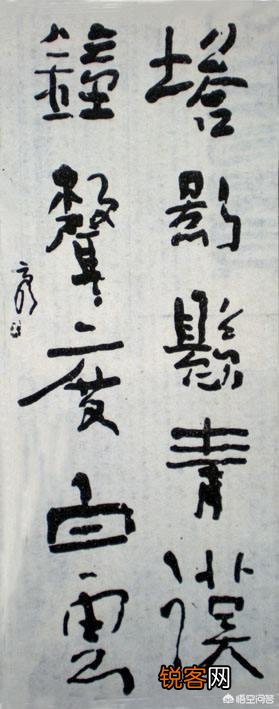 塔影懸青漢
鐘聲度白雲
锐客网
悟空问答